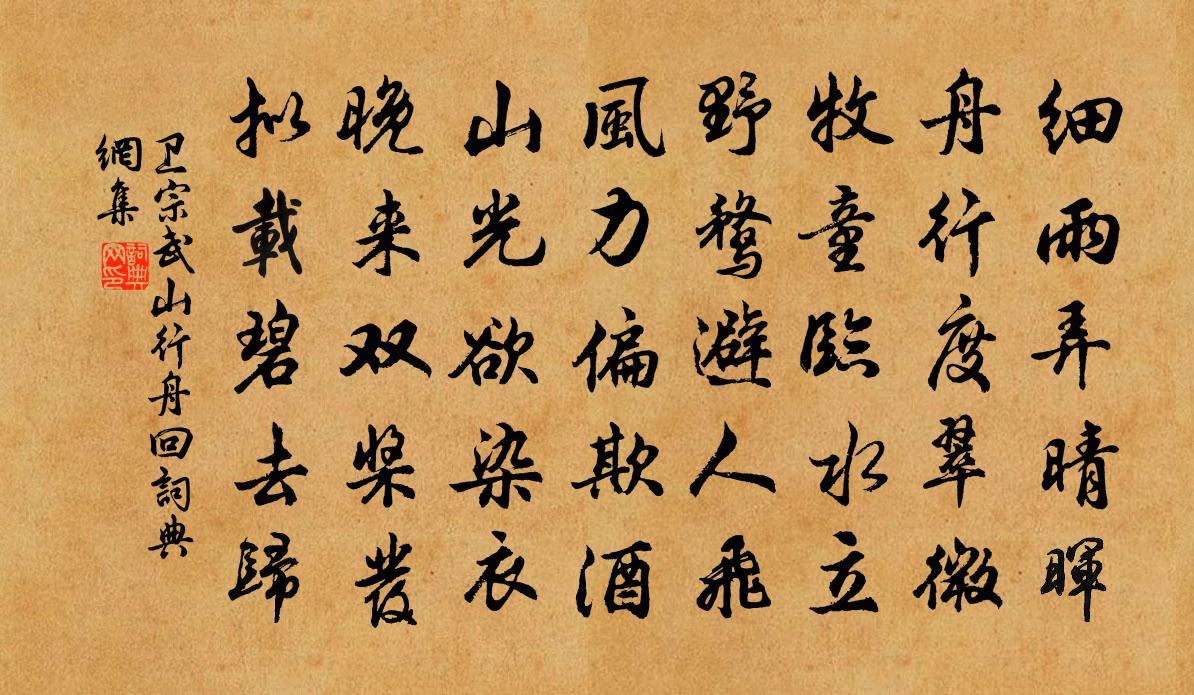 細雨弄晴暉
舟行度翠微
牧童臨水立
野鶩避人飛
風力偏欺酒
山光欲染衣
晚来双槳發
拟載碧去歸
卫宗武山行舟回詞典
網集
詞典
网印